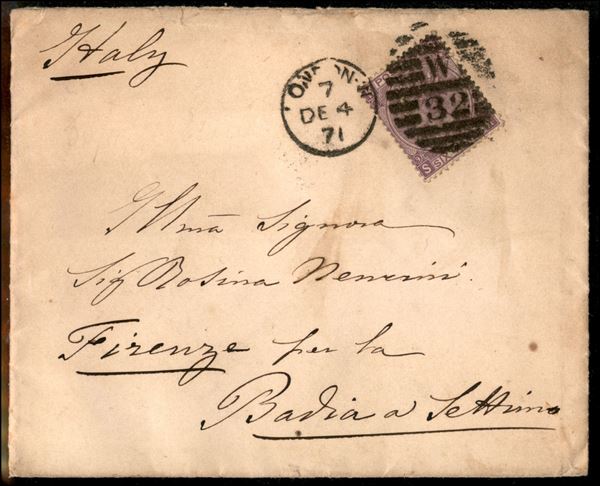 Italy
LONDON-W
7
DE 4
71
W
32
Illma Signora
Sig Rosina Nencini
Firenze per la
Badia a Settimo